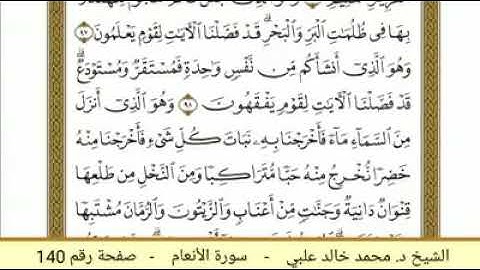 بِهَا فِي ظُلُمَٰتِ ٱلْبَرِّ وَٱلْبَحْرِۗ قَدْ فَصَّلْنَا ٱلْأٓيَٰتِ لِقَوْمٍ يَعْلَمُونَ ٩٧
وَهُوَ ٱلَّذِيٓ أَنشَأَكُم مِّن نَّفْسٍ وَٰحِدَةٍ فَمُسْتَقَرٌّ وَمُسْتَوْدَعٌۗ
قَدْ فَصَّلْنَا ٱلْأٓيَٰتِ لِقَوْمٍ يَفْقَهُونَ ٩٨ وَهُوَ ٱلَّذِيٓ أَنزَلَ
مِنَ ٱلسَّمَآءِ مَآءً فَأَخْرَجْنَا بِهِۦ نَبَاتَ كُلِّ شَيْءٍ فَأَخْرَجْنَا مِنْهُ
خَضِرًا نُّخْرِجُ مِنْهُ حَبًّا مُّتَرَاكِبًا وَمِنَ ٱلنَّخْلِ مِن طَلْعِهَا
قِنْوَانٌ دَانِيَةٌ وَجَنَّٰتٍ مِّنْ أَعْنَابٍ وَٱلزَّيْتُونَ وَٱلرُّمَّانَ مُشْتَبِهًا
الشيخ د. محمد خالد علبي - سورة الأنعام - صفحة رقم 140